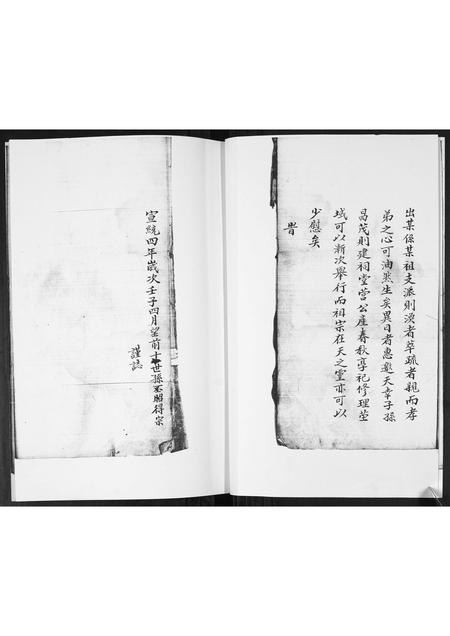 出某係某祖支派則渙者萃疏者親而孝
弟之心可油然生矣異日者惠邀天幸子孫
昌茂則建祠堂營公產春秋享祀修理塋
域可以漸次舉行而祖宗在天之靈亦可以
少慰矣
旹
宣統四年歲次壬子四月望前十世孫照得宗
謹誌